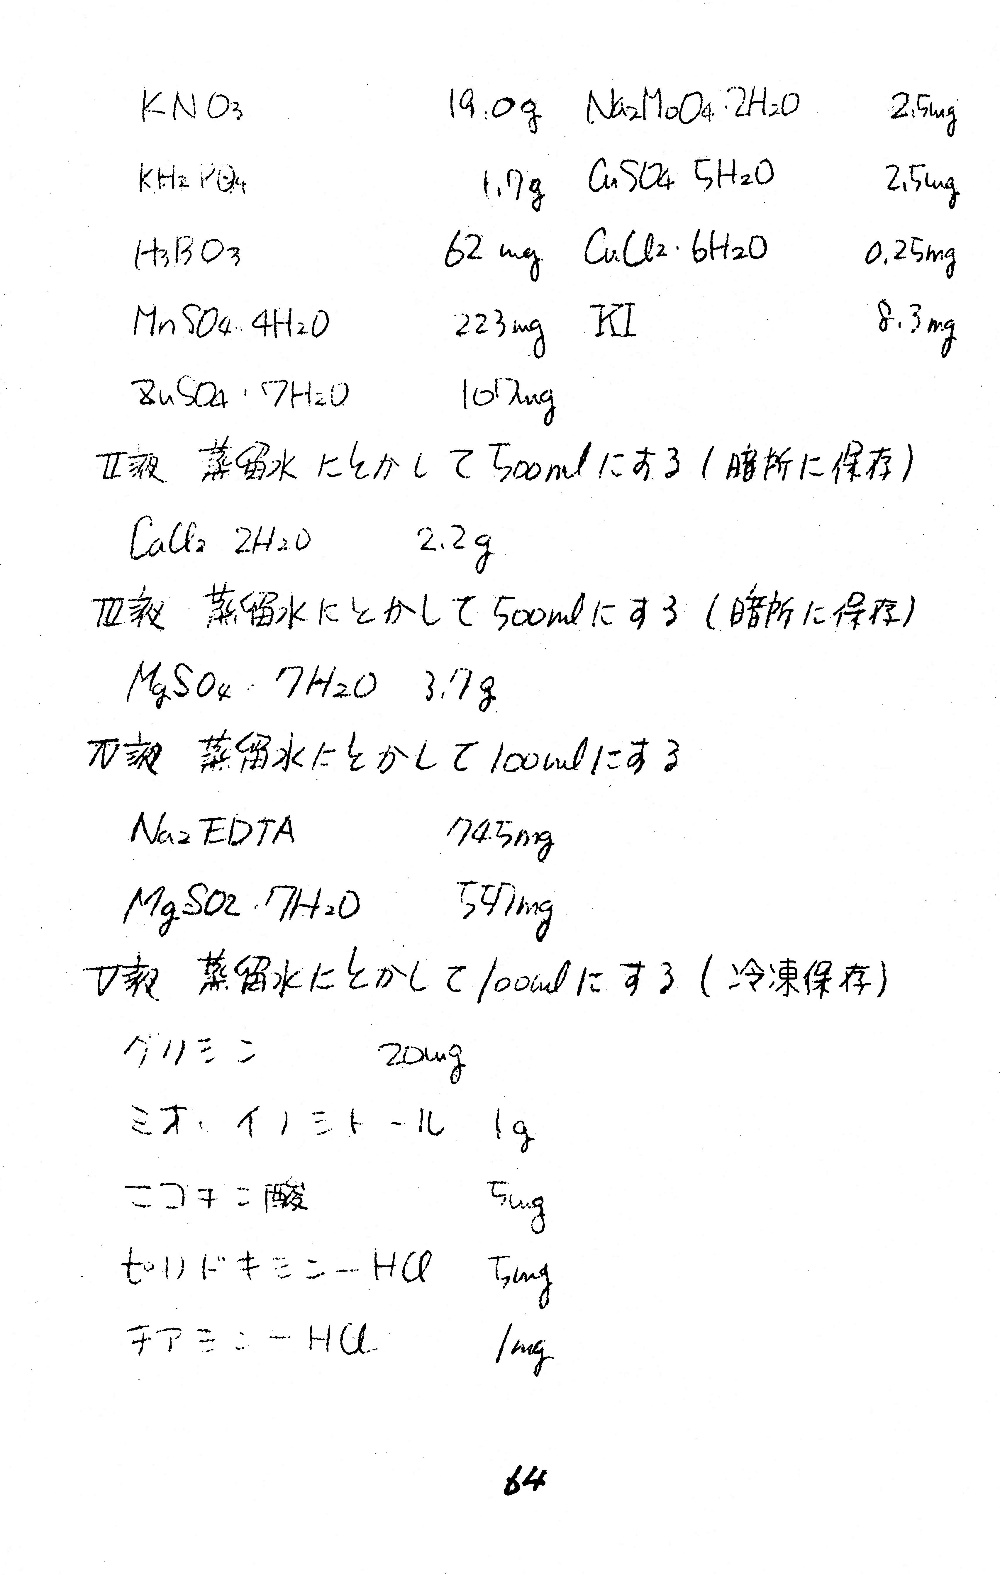 KNO3 19.0g Na2MoO4・2H2O 2.5mg
KH2PO4 1.7g CuSO4 5H2O 2.5mg
H3BO3 62mg CuCl2・6H2O 0.25mg
MnSO4・4H2O 223mg KI 8.3mg
ZnSO4・7H2O 107mg
II液 蒸留水にとかして500mlにする(暗所に保存)
CaCl2 2H2O 2.2g
III液 蒸留水にとかして500mlにする(暗所に保存)
MgSO4・7H2O 3.7g
IV液 蒸留水にとかして100mlにする
Na2EDTA 745mg
MgSO2・7H2O 557mg
V液 蒸留水にとかして100mlにする(冷凍保存)
グリミン 20mg
ミオ・イノシトール 1g
ニコチン酸 5mg
ピリドキミンーHCl 5mg
チアミンーHCl 1mg
64